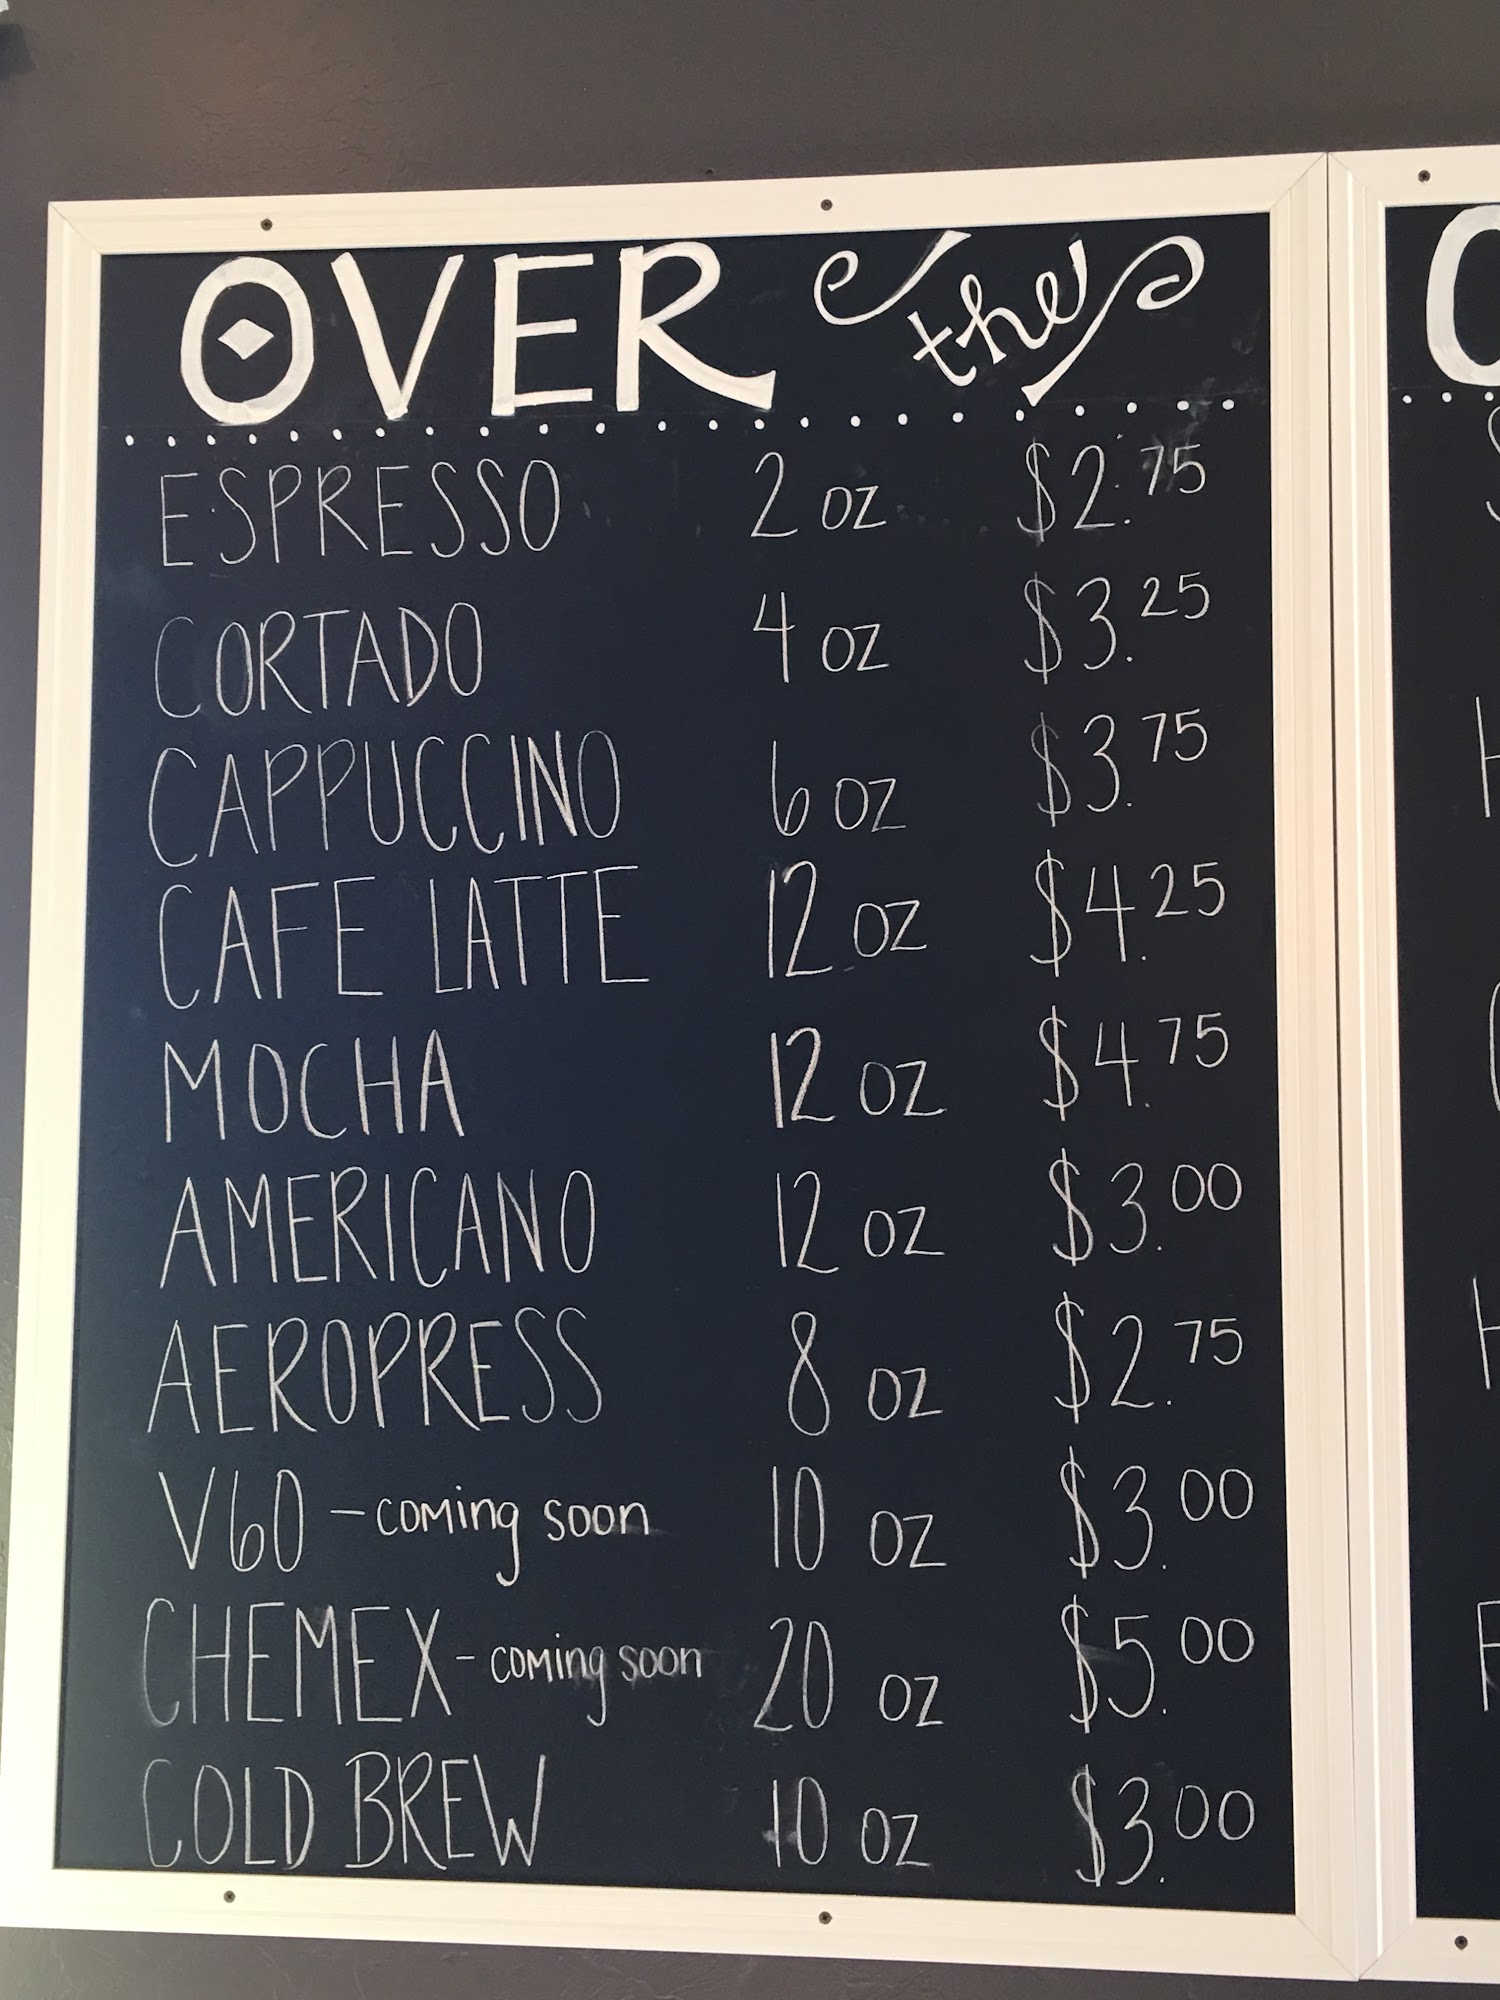 OVER the
ESPRESSO 2 oz $2.75
CORTADO 4 oz $3.25
CAPPUCCINO 6 oz $3.75
CAFE LATTE 12 oz $4.25
MOCHA 12 oz $4.75
AMERICANO 12 oz $3.00
AEROPRESS 8 oz $2.75
V60 - coming soon 10 oz $3.00
CHEMEX - coming soon 20 oz $5.00
COLD BREW 10 oz $3.00